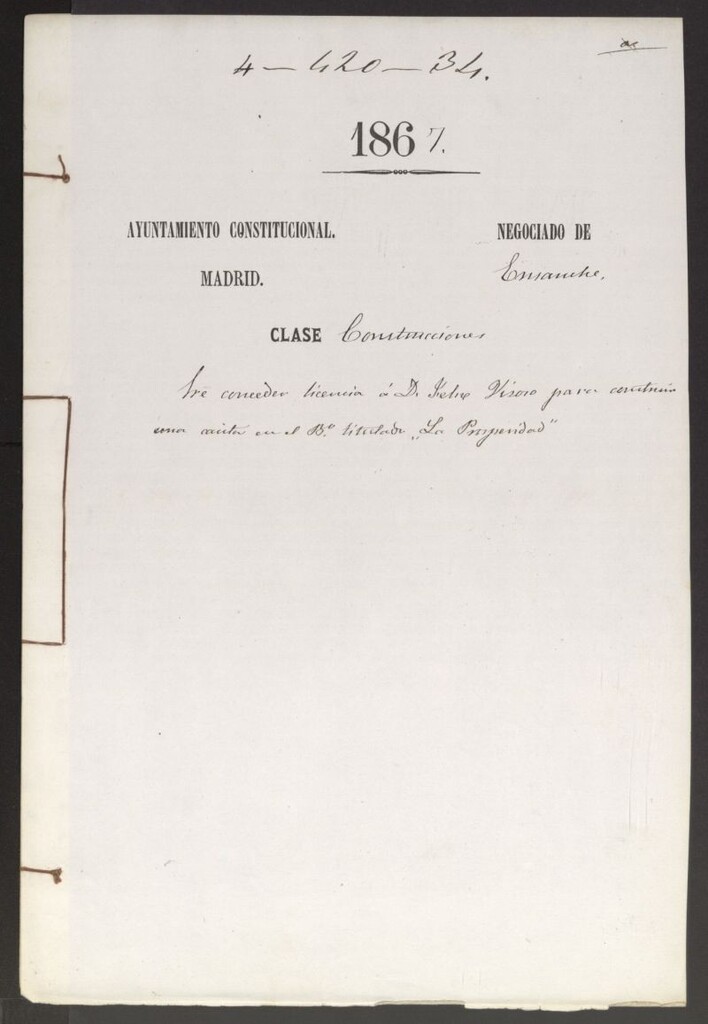 4 — 420 — 34.
1867.
AYUNTAMIENTO CONSTITUCIONAL.
MADRID.
NEGOCIADO DE
Ensanche.
CLASE Construcciones
conceder licencia á D. Visoso para construir
una casita en el B.º titulado "La Prosperidad"